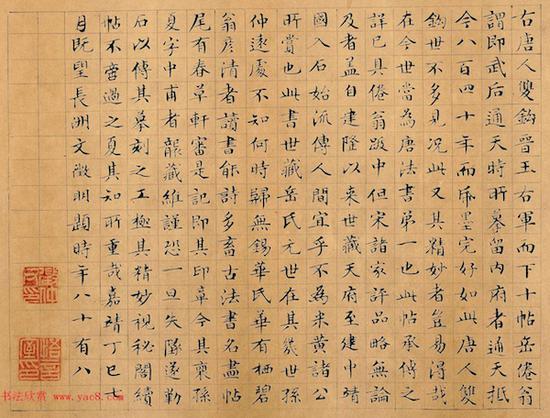 右唐人雙鈎晉王右軍而下十帖岳倦翁
謂即武后通天時所摹留內府者通天抵
今八百四十年而紙墨完好如此唐人雙
鈎世不多見況此又其精妙者豈易得哉
在今世當為唐法書第一也此帖承傳之
詳已具倦翁跋中但宋諸家評品略無論
及者盖自建隆以來世藏天府至建中靖
國入石始流傳人間宜乎不為米黃諸公
所賞也此書世藏岳氏元世在其幾世孫
仲遠處不知何時歸無錫華氏華有栖碧
翁彥清者讀書能詩多畜古法書名畫帖
尾有春草軒審是記即其印章今其裔孫
夏字中甫者襲藏維謹恐一旦失隊遂勒
石以傳其摹刻之工極其精妙視秘閣續
帖不啻過之夏其知所重哉嘉靖丁巳六
月既望長洲文徵明題時年八十有八
书法欣赏 www.yac8.com